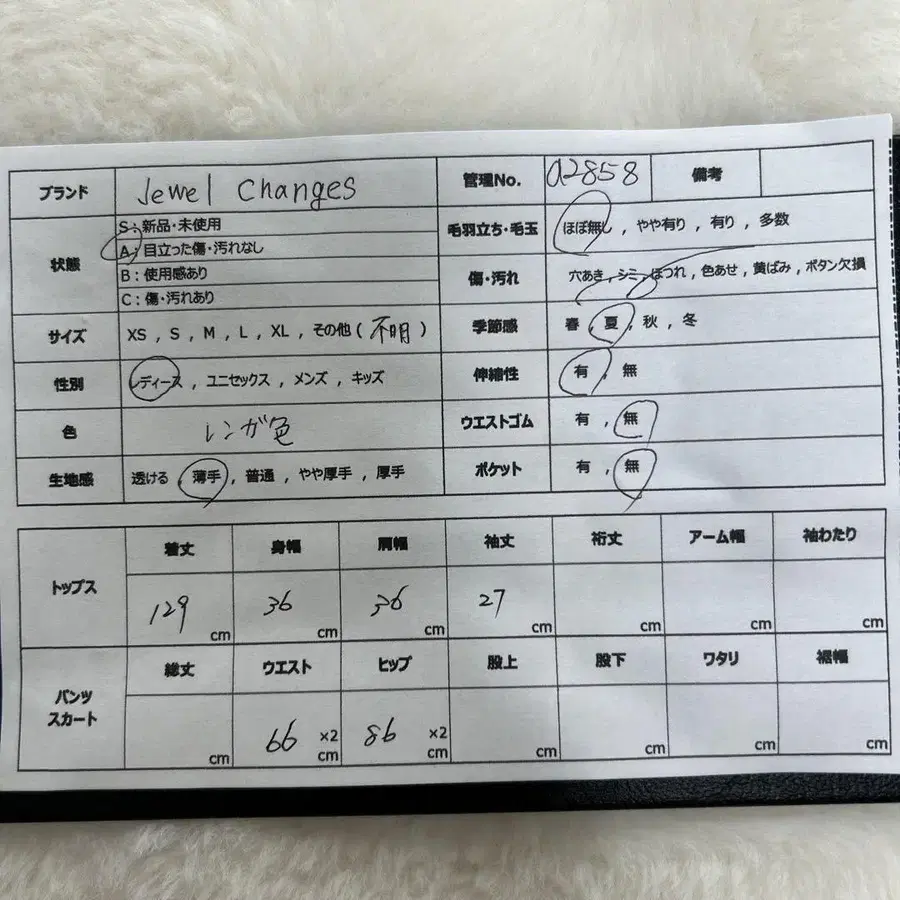 ブランド Jewel Changes 管理No. a2858 備考
状態 S：新品・未使用 毛羽立ち・毛玉 ほぼ無し，やや有り，有り，多数
A：目立った傷・汚れなし
B：使用感あり 傷・汚れ 穴あき，シミ，ほつれ，色あせ，黄ばみ，ボタン欠損
C：傷・汚れあり
サイズ XS，S，M，L，XL，その他(不明) 季節感 春，夏，秋，冬
性別 レディース，ユニセックス，メンズ，キッズ 伸縮性 有，無
色 レンガ色 ウエストゴム 有，無
生地感 透ける，薄手，普通，やや厚手，厚手 ポケット 有，無
トップス 着丈 身幅 肩幅 袖丈 裄丈 アーム幅 袖わたり
129 cm 36 cm 36 cm 27 cm cm cm cm
パンツ スカート 総丈 ウエスト ヒップ 股上 股下 ワタリ 裾幅
cm 66 ×2 cm 86 ×2 cm cm cm cm cm